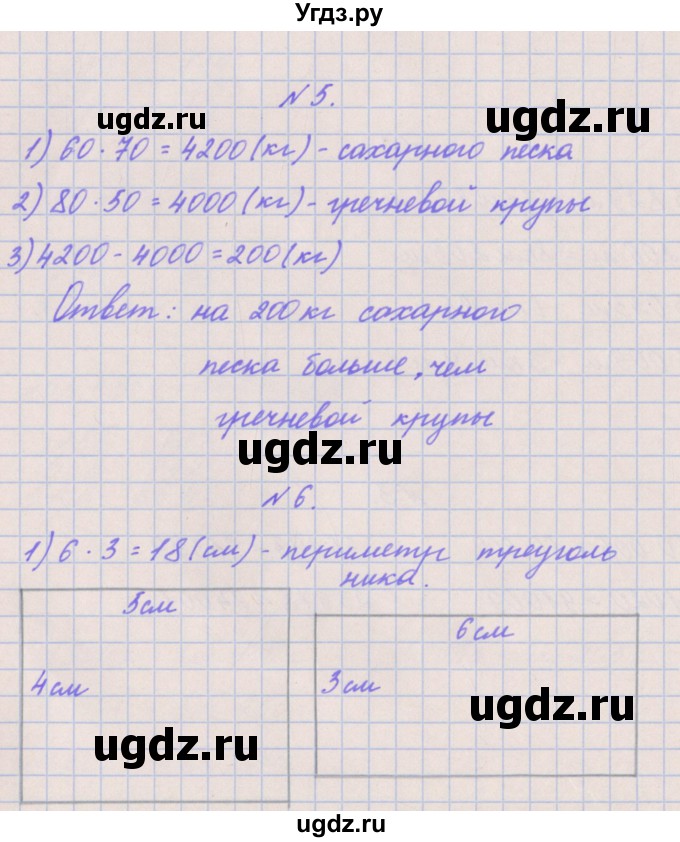 Угдз.ру
№5.
ugdz.ru ugdz.ru
1) 60 · 70 = 4200 (кг) - сахарного песка
2) 80 · 50 = 4000 (кг) - гречневой крупы
3) 4200 - 4000 = 200 (кг)
ugdz.ru ugdz.ru
Ответ: на 200 кг сахарного
песка больше, чем
гречневой крупы
ugdz.ru ugdz.ru
№6.
1) 6 · 3 = 18 (см) - периметр треуголь
ника.
5см
6см
4см
3см
ugdz.ru
ugdz.ru
ugdz.ru